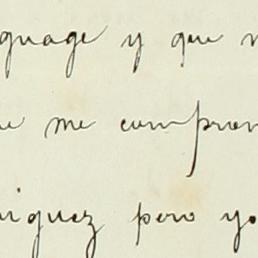 guage y que n
e me compren
iquez pero yo